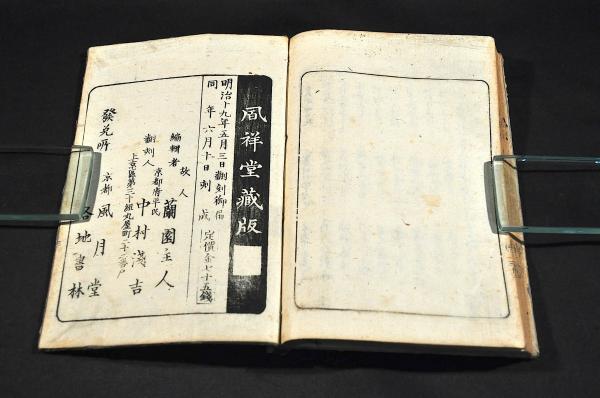 凮祥堂藏版
明治十九年五月三日翻刻御届
同年六月十日刻成 定價金七十五錢
編輯者 故人 蘭園主人
翻刻人 京都府平民 中村淺吉
上京區第三十組丸屋町二十六番戸
發兌所 京都 風月堂
各地書林